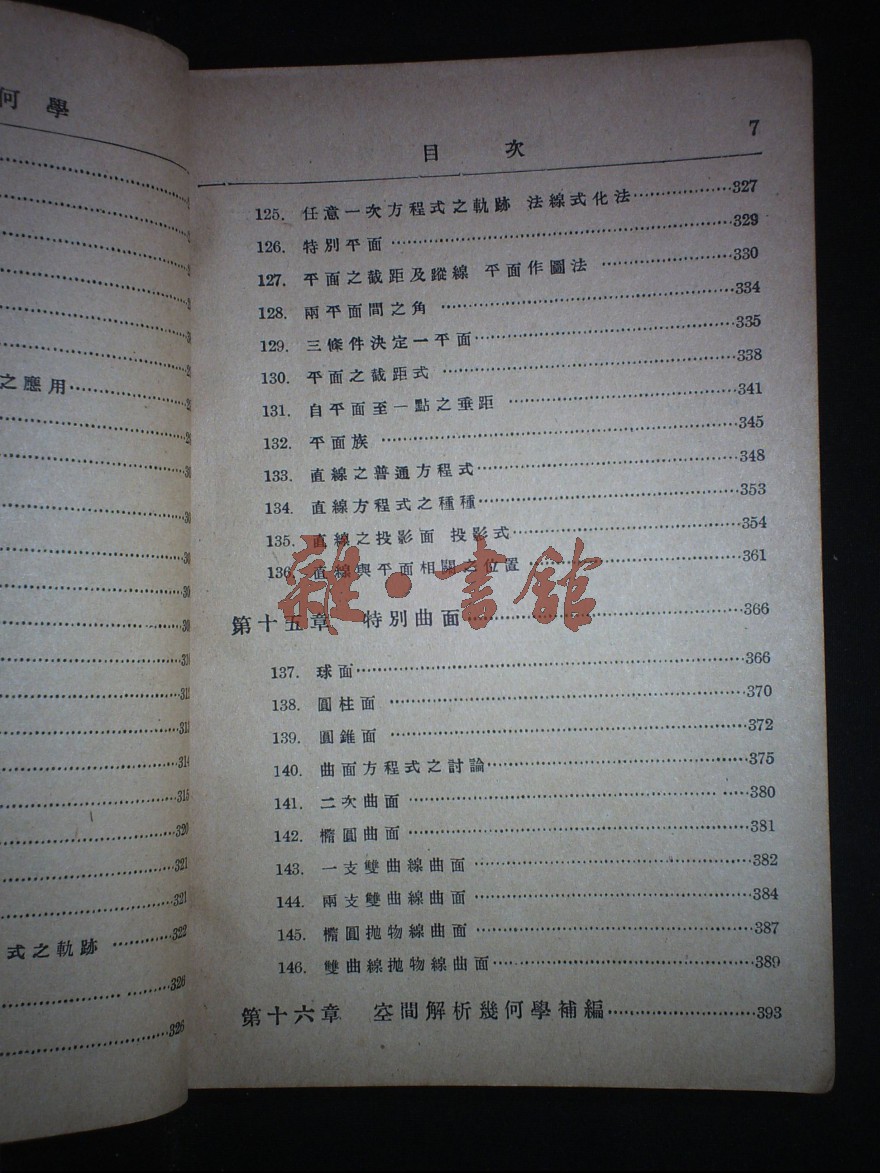 何學
之應用
320
321
321
式之軌跡 322
326
326
目次 7
125. 任意一次方程式之軌跡 法線式化法 327
126. 特別平面 329
127. 平面之截距及蹤線 平面作圖法 330
128. 兩平面間之角 334
129. 三條件決定一平面 335
130. 平面之截距式 338
131. 自平面至一點之垂距 341
132. 平面族 345
133. 直線之普通方程式 348
134. 直線方程式之種種 353
135. 直線之投影面 投影式 354
136. 直線與平面相關之位置 361
雜·書館
第十五章 特別曲面 366
137. 球面 366
138. 圓柱面 370
139. 圓錐面 372
140. 曲面方程式之討論 375
141. 二次曲面 380
142. 橢圓曲面 381
143. 一支雙曲線曲面 382
144. 兩支雙曲線曲面 384
145. 橢圓拋物線曲面 387
146. 雙曲線拋物線曲面 389
第十六章 空間解析幾何學補編 393